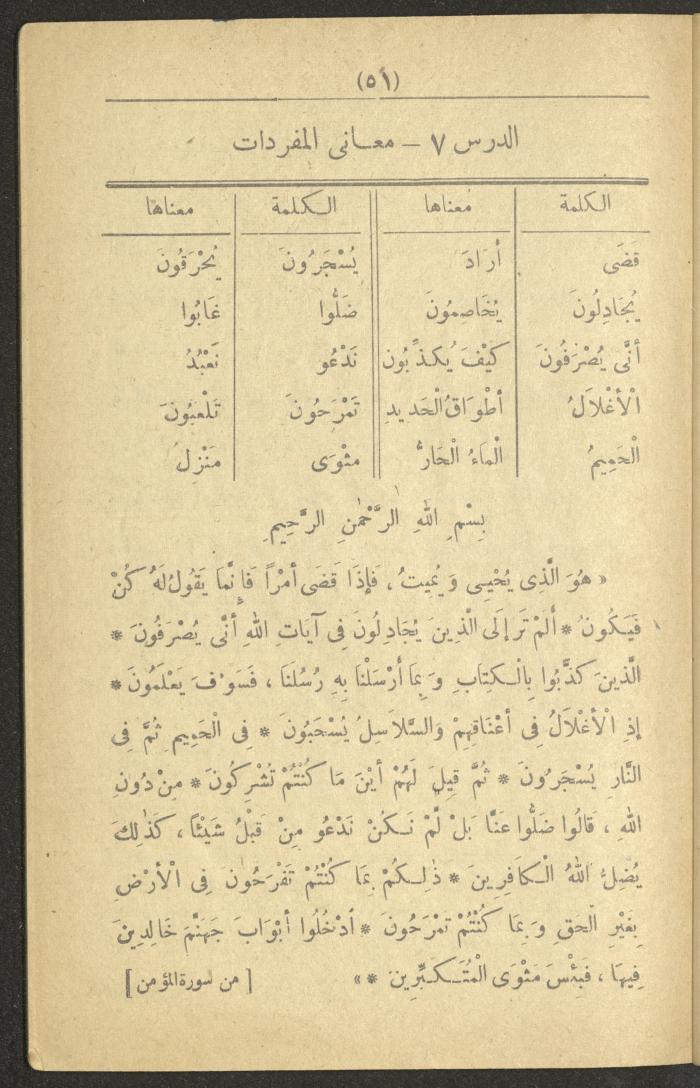 (٥١)
الدرس ٧ – معانى المفردات
الكلمة معناها الكلمة معناها
قَضَى أرَادَ يُسْجَرُونَ يُحْرَقُونَ
يُجَادِلُونَ يُخَاصِمُونَ ضَلُّوا غَابُوا
أنَّى يُصْرَفُونَ كَيْفَ يُكَذِّبُون نَدْعُو نَعْبُدُ
الْأغْلَالُ أطْوَاقُ الْحَدِيدِ تَمْرَحُونَ تَلْعَبُونَ
الْحَمِيمُ الْمَاءُ الْحَارُّ مثْوَى مَنْزِلُ
بِسْمِ اللهِ الرَّحْمٰنِ الرَّحِيمِ
« هُوَ الَّذِى يُحْيِى وَيُمِيتُ ، فَإذَا قَضَى أمْرًا فَإنَّمَا يَقُولُ لَهُ كُنْ
فَيَكُونُ * ألَمْ تَرَ إلَى الَّذِينَ يُجَادِلُونَ فِى آيَاتِ اللهِ أنَّى يُصْرَفُونَ *
الَّذِينَ كَذَّبُوا بِالْكِتَابِ وَبِمَا أرْسَلْنَا بِهِ رُسُلَنَا ، فَسَوْفَ يَعْلَمُونَ *
إذِ الْأغْلَالُ فِى أعْنَاقِهِمْ وَالسَّلَاسِلُ يُسْحَبُونَ * فِى الْحَمِيمِ ثُمَّ فِى
النَّارِ يُسْجَرُونَ * ثُمَّ قِيلَ لَهُمْ أيْنَ مَا كُنْتُمْ تُشْرِكُونَ * مِنْ دُونِ
اللهِ ، قَالُوا ضَلُّوا عَنَّا بَلْ لَّمْ نَكُنْ نَدْعُو مِنْ قَبْلُ شَيْئًا ، كَذٰلِكَ
يُضِلُّ اللهُ الْكَافِرِينَ * ذٰلِكُمْ بِمَا كُنْتُمْ تَفْرَحُونَ فِى الْأرْضِ
بِغَيْرِ الْحَقِ وَبِمَا كُنْتُمْ تَمْرَحُونَ * اُدْخُلُوا أبْوَابَ جَهَنَّمَ خَالِدِينَ
فِيهَا ، فَبِئْسَ مَثْوَى الْمُتَكَبِّرِينَ * » [من سورة المؤمن]